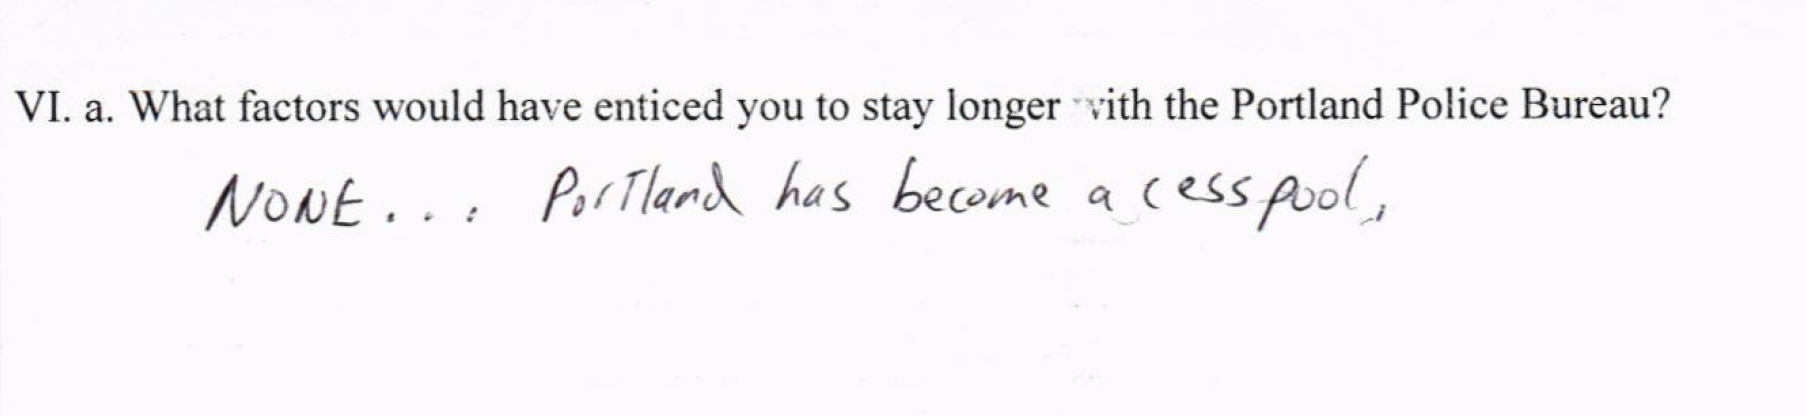 VI. a. What factors would have enticed you to stay longer with the Portland Police Bureau?
NONE... Portland has become a cesspool.